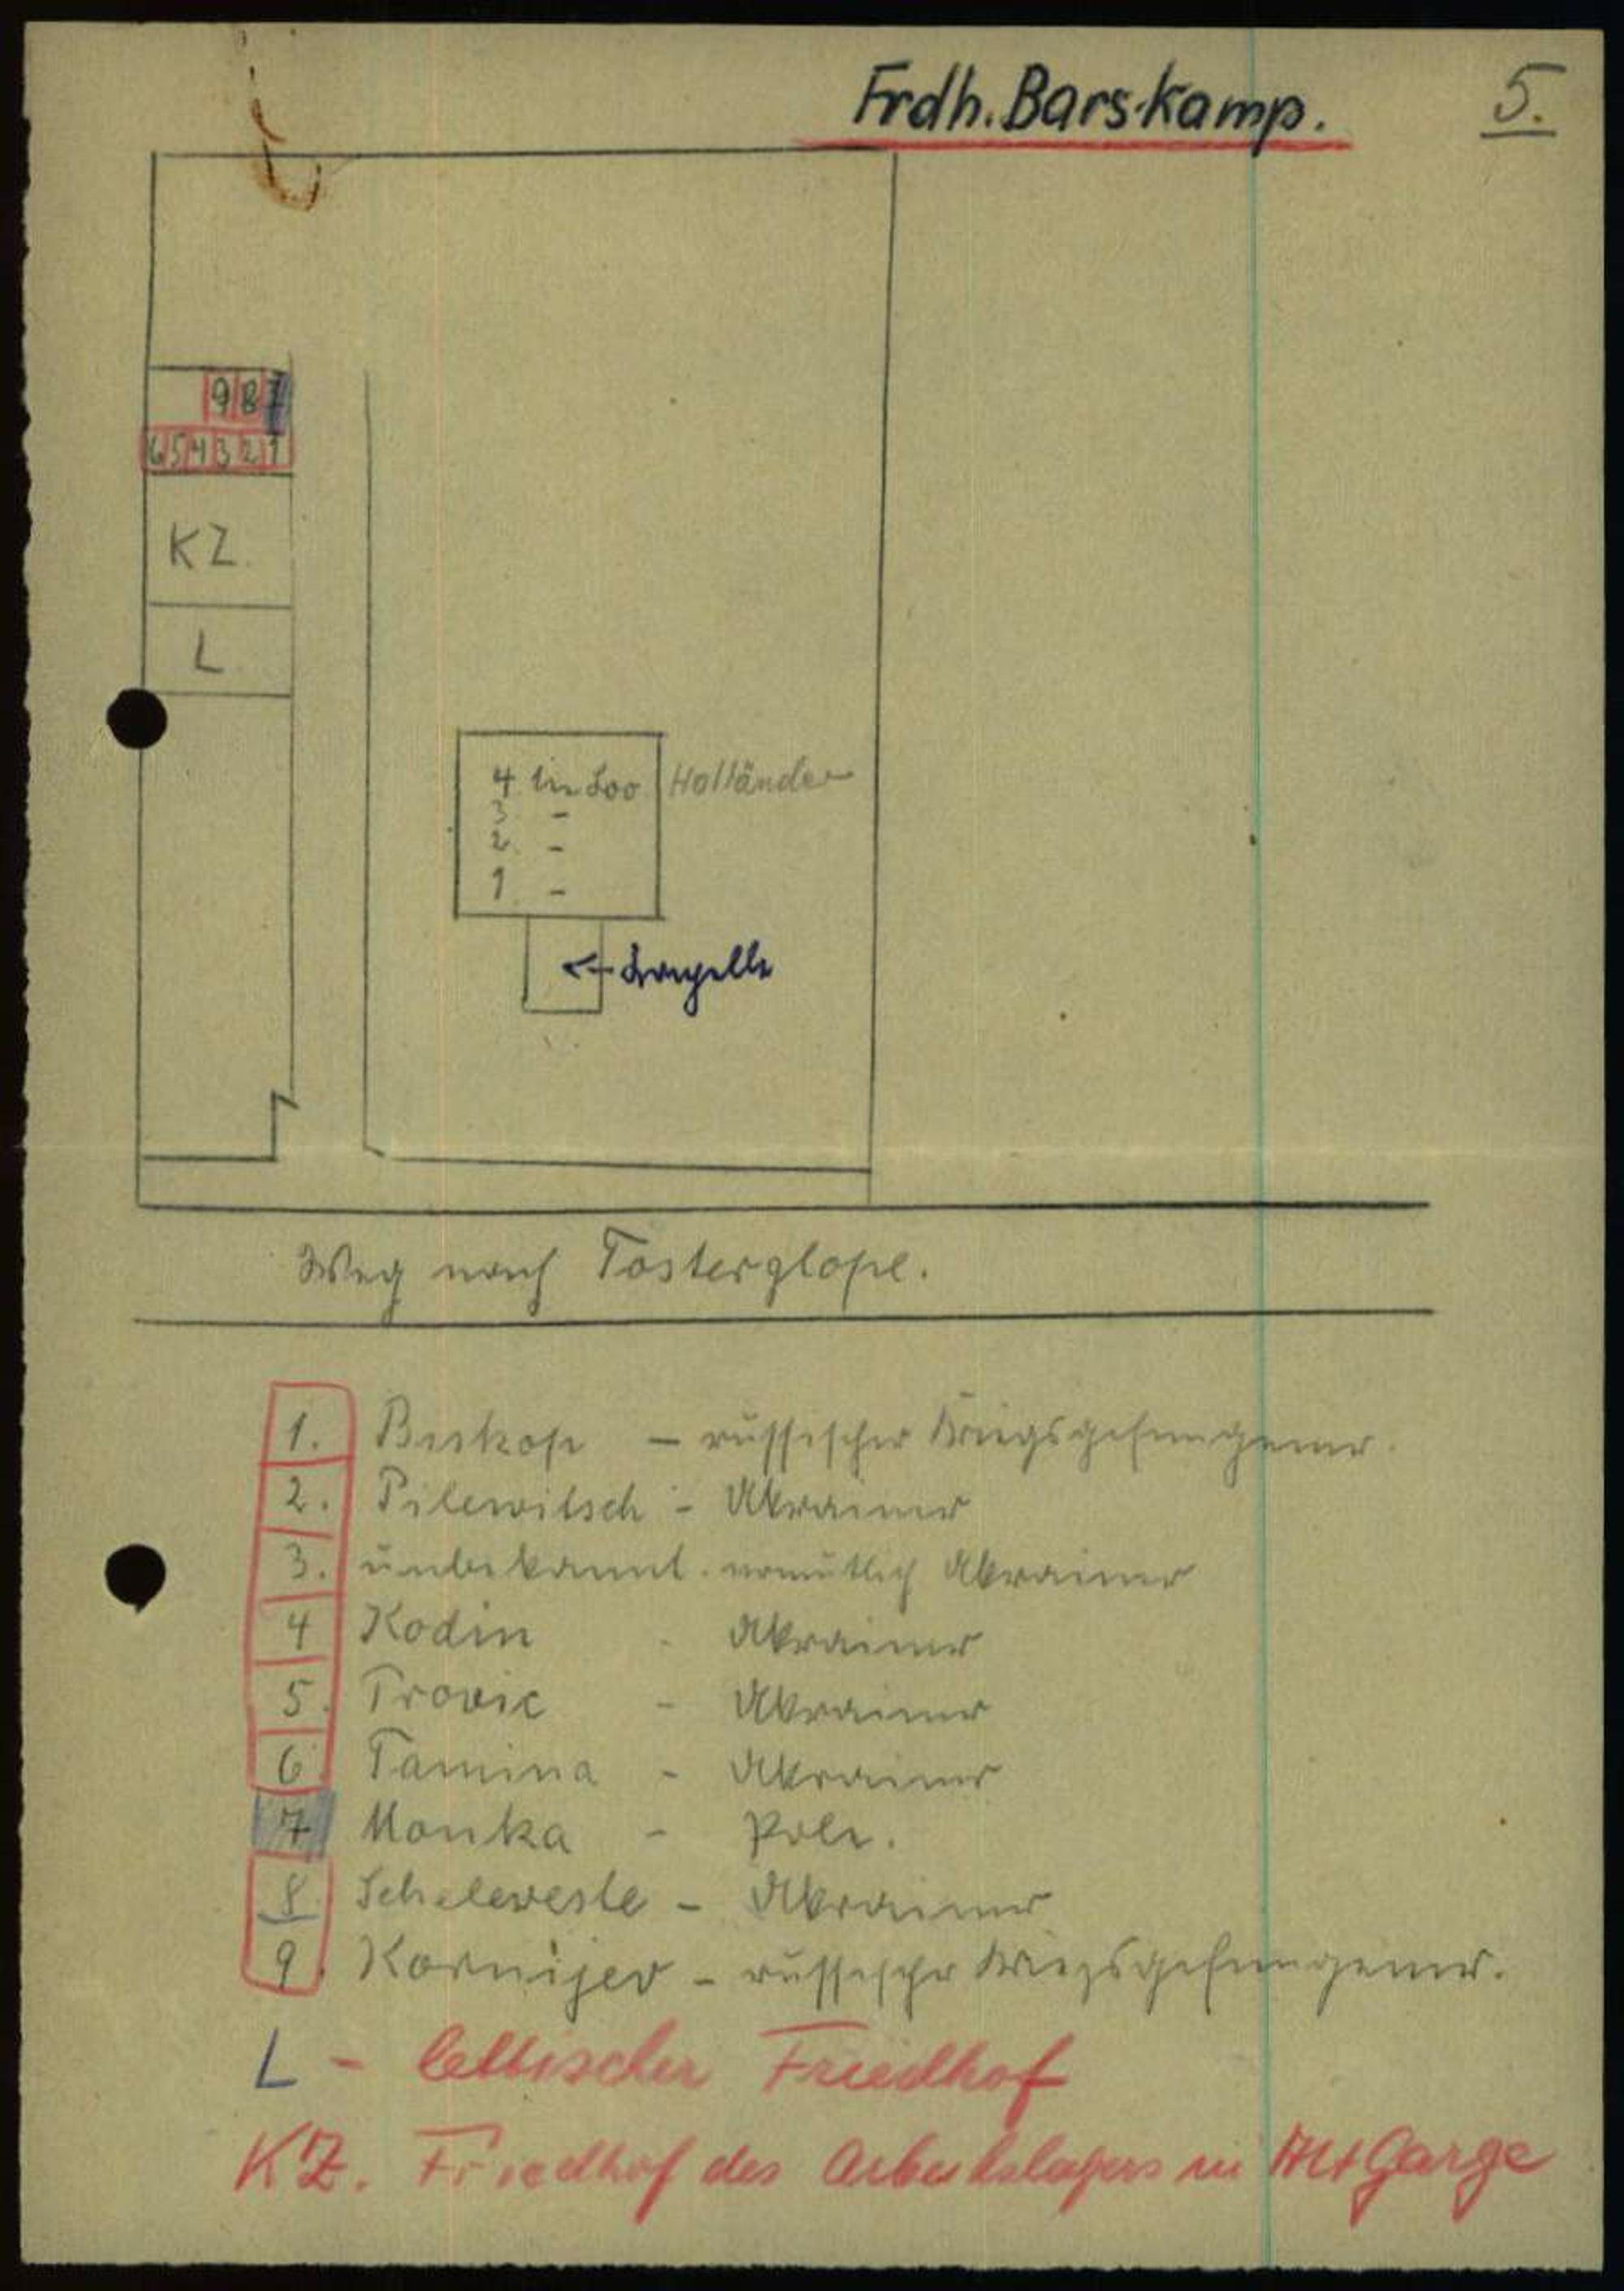 Frdh. Barskamp.
5.
9 8 7
6 5 4 3 2 1
KZ.
L
4. Loo Holländer
3. -
2. -
1. -
← Kapelle
Weg nach Tosterglope.
1. Biskop - russischer Kriegsgefangener.
2. Pilewitsch - Ukrainer
3. unbekannt. vermutlich Ukrainer
4 Kodin - Ukrainer
5. Trovic - Ukrainer
6. Tamina - Ukrainer
7 Monka - Pole.
8. Scheleveste - Ukrainer
9. Kornijev - russischer Kriegsgefangener.
L - lettischer Friedhof
KZ. Friedhof des Arbeitslagers in Alt Garge